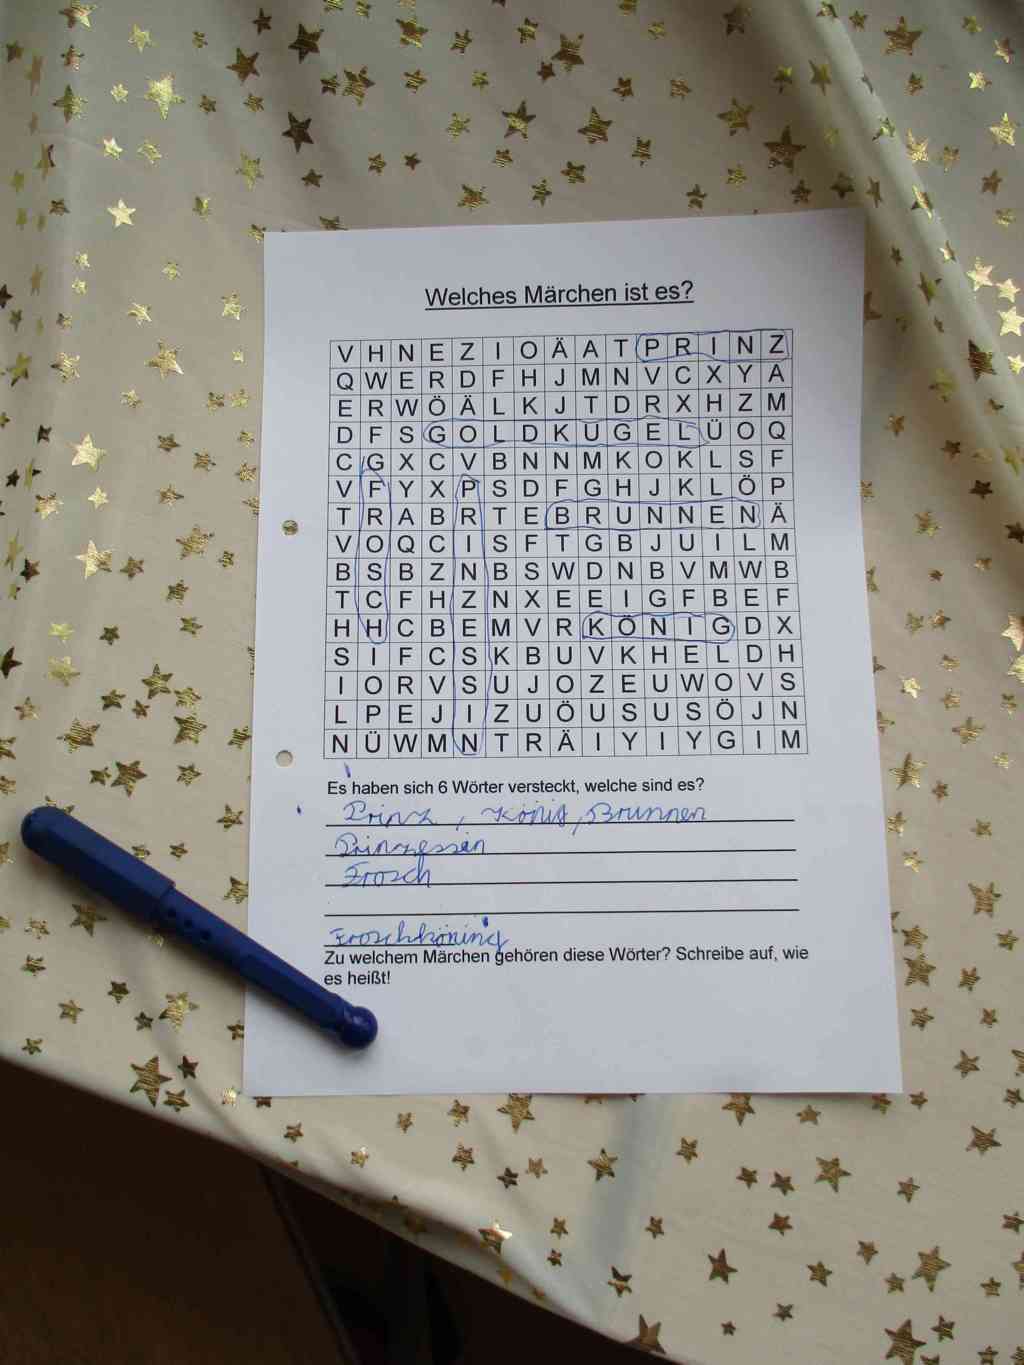 Welches Märchen ist es?
V H N E Z I O Ä A T P R I N Z
Q W E R D F H J M N V C X Y A
E R W Ö Ä L K J T D R X H Z M
D F S G O L D K U G E L Ü O Q
C G X C V B N N M K O K L S F
V F Y X P S D F G H J K L Ö P
T R A B R T E B R U N N E N Ä
V O Q C I S F T G B J U I L M
B S B Z N B S W D N B V M W B
T C F H Z N X E E I G F B E F
H H C B E M V R K Ö N I G D X
S I F C S K B U V K H E L D H
I O R V S U J O Z E U W O V S
L P E J I Z U Ö U S U S Ö J N
N Ü W M N T R Ä I Y I Y G I M
Es haben sich 6 Wörter versteckt, welche sind es?
Prinz, König, Brunnen
Prinzessin
Frosch
Froschköning
Zu welchem Märchen gehören diese Wörter? Schreibe auf, wie
es heißt!